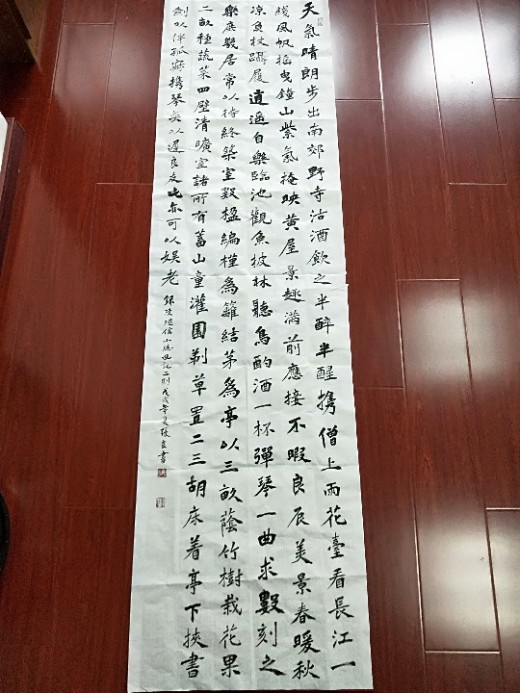 天氣晴朗步出南郊野寺沽酒飲之半醉半醒攜僧上雨花臺看長江一
綫風帆搖曳鍾山紫氣掩映黃屋景趣滿前應接不暇良辰美景春暖秋
涼負杖躡履逍遙自樂臨池觀魚披林聽鳥酌酒一杯彈琴一曲求數刻之
樂庶幾居常以待終築室數楹編槿為籬結茅為亭以三畝蔭竹樹栽花果
二畝種蔬菜四壁清曠空諸所有蓄山童灌園剃草置二三胡床着亭下挾書
劍以伴孤寂攜琴奕以遲良友此亦可以娛老 錄陳繼儒小窗幽記二則戊戌年夏